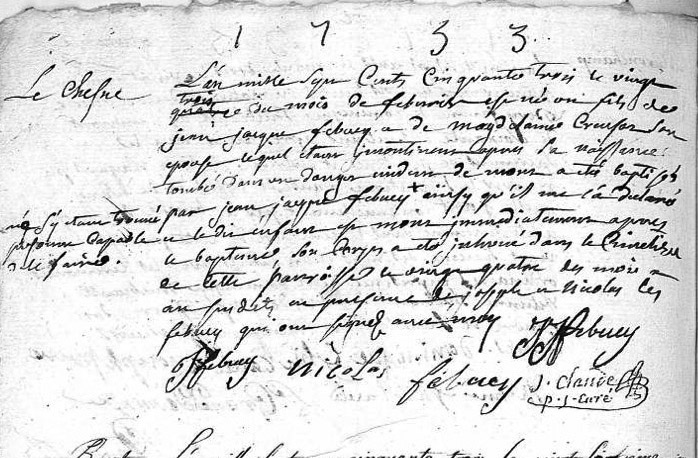 1 7 5 3.
Le Chesne
L'an mille sept Cents Cinquante trois le vingt
trois
quatre du mois de febvrier est né un fils de
jean jacque febvey et de magdelaine son
epouse lequel etant apres sa naissance
tombé dans un danger de mort a eté baptisé
par jean jacque febvey + ainsy qu'il me l'a declaré
et le dit enfant est mort immediatement apres
le baptesme son Corps a eté inhumé dans le Cimetiere
de cette parroisse le vingt quatre des mois
an susdits en presence de joseph et Nicolas les
febvey qui ont signez avec moy
ne s'y etant trouvé
personne Capable
de le faire.
JJ febvey
J febvey Nicolas febvey
J. Claude
p. j. Curé